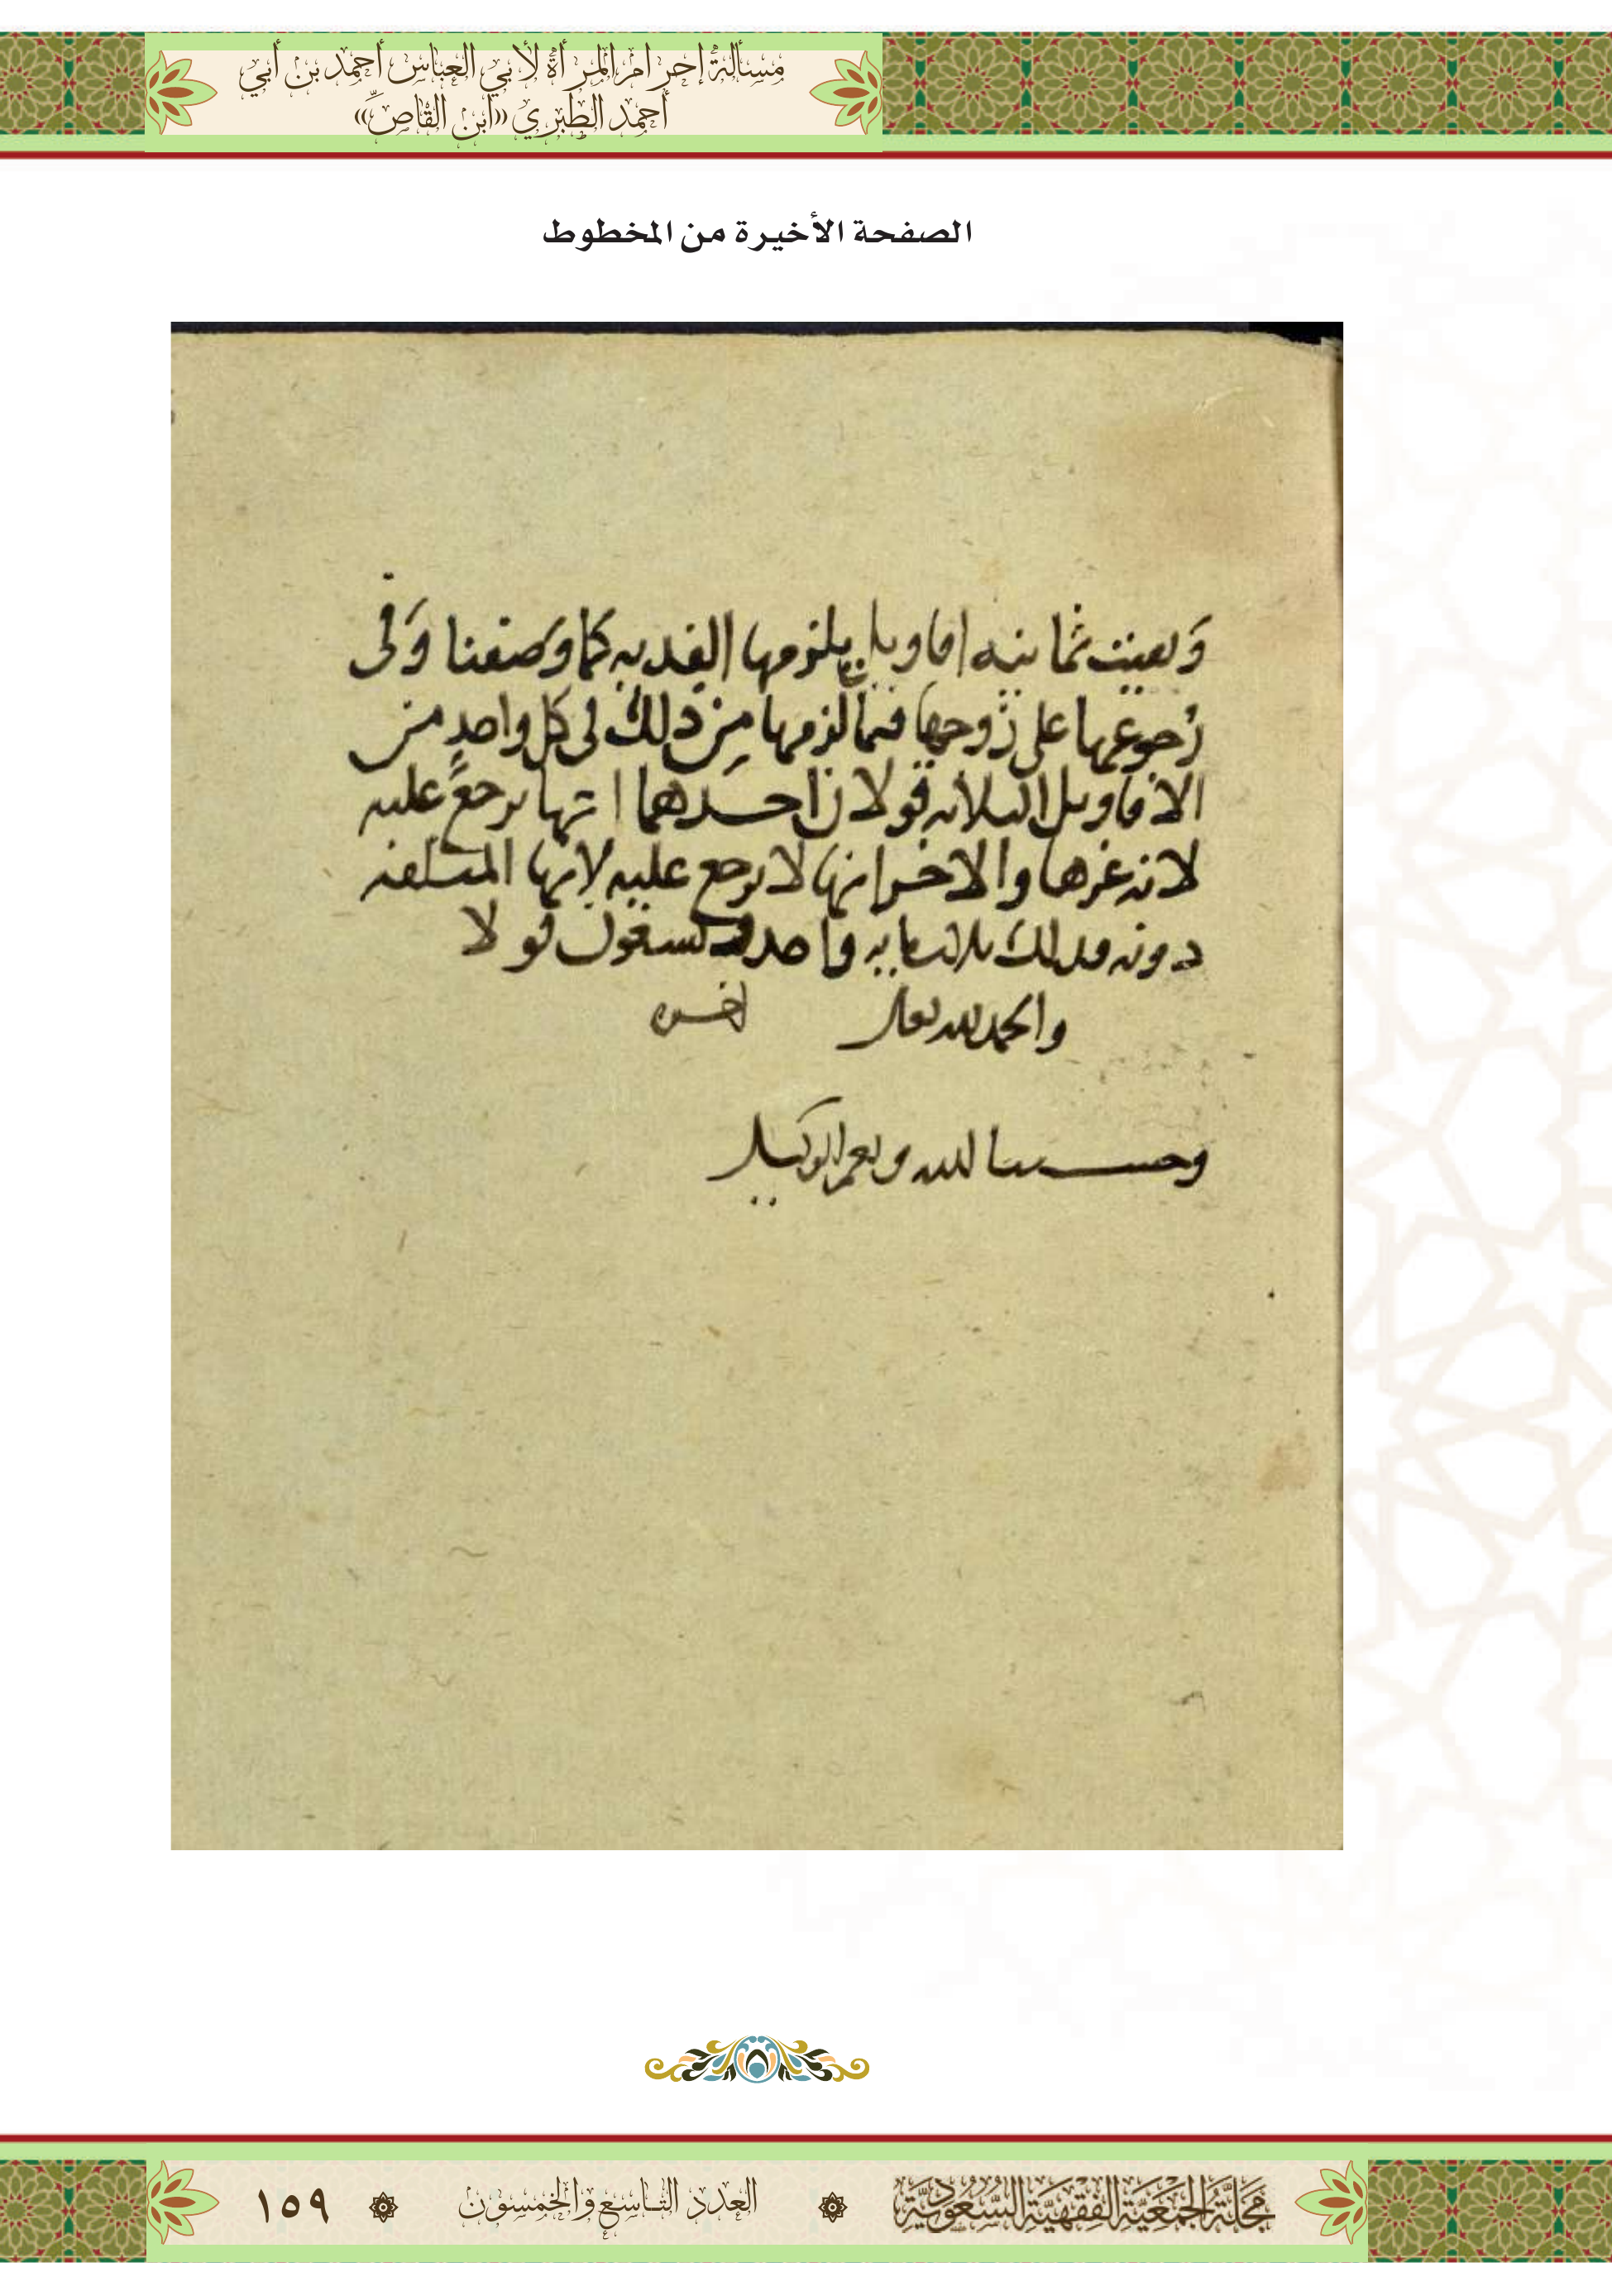 مسألة إحرام المرأة لأبي العباس أحمد بن أبي
أحمد الطبري «ابن القاصّ»
الصفحة الأخيرة من المخطوط
وبقيت ثمانية اقاويل يلزمها الفدية كما وصفنا وفي
رجوعها على زوجها فيما لزمها من ذلك في كل واحد من
الاقاويل الثلاثه قولان احدهما انها يرجع عليه
لانه غرها والاخر انها لا يرجع عليه لانها المتلفه
دونه فذلك ثلثمايه واحد وتسعون قولا
والحمد لله تعالى اخره
وحسبنا الله ونعم الوكيل
مَجَلَّةُ الجَمْعِيَّةِ الفِقْهِيَّةِ السُّعُودِيَّةِ
العدد التاسع والخمسون
١٥٩